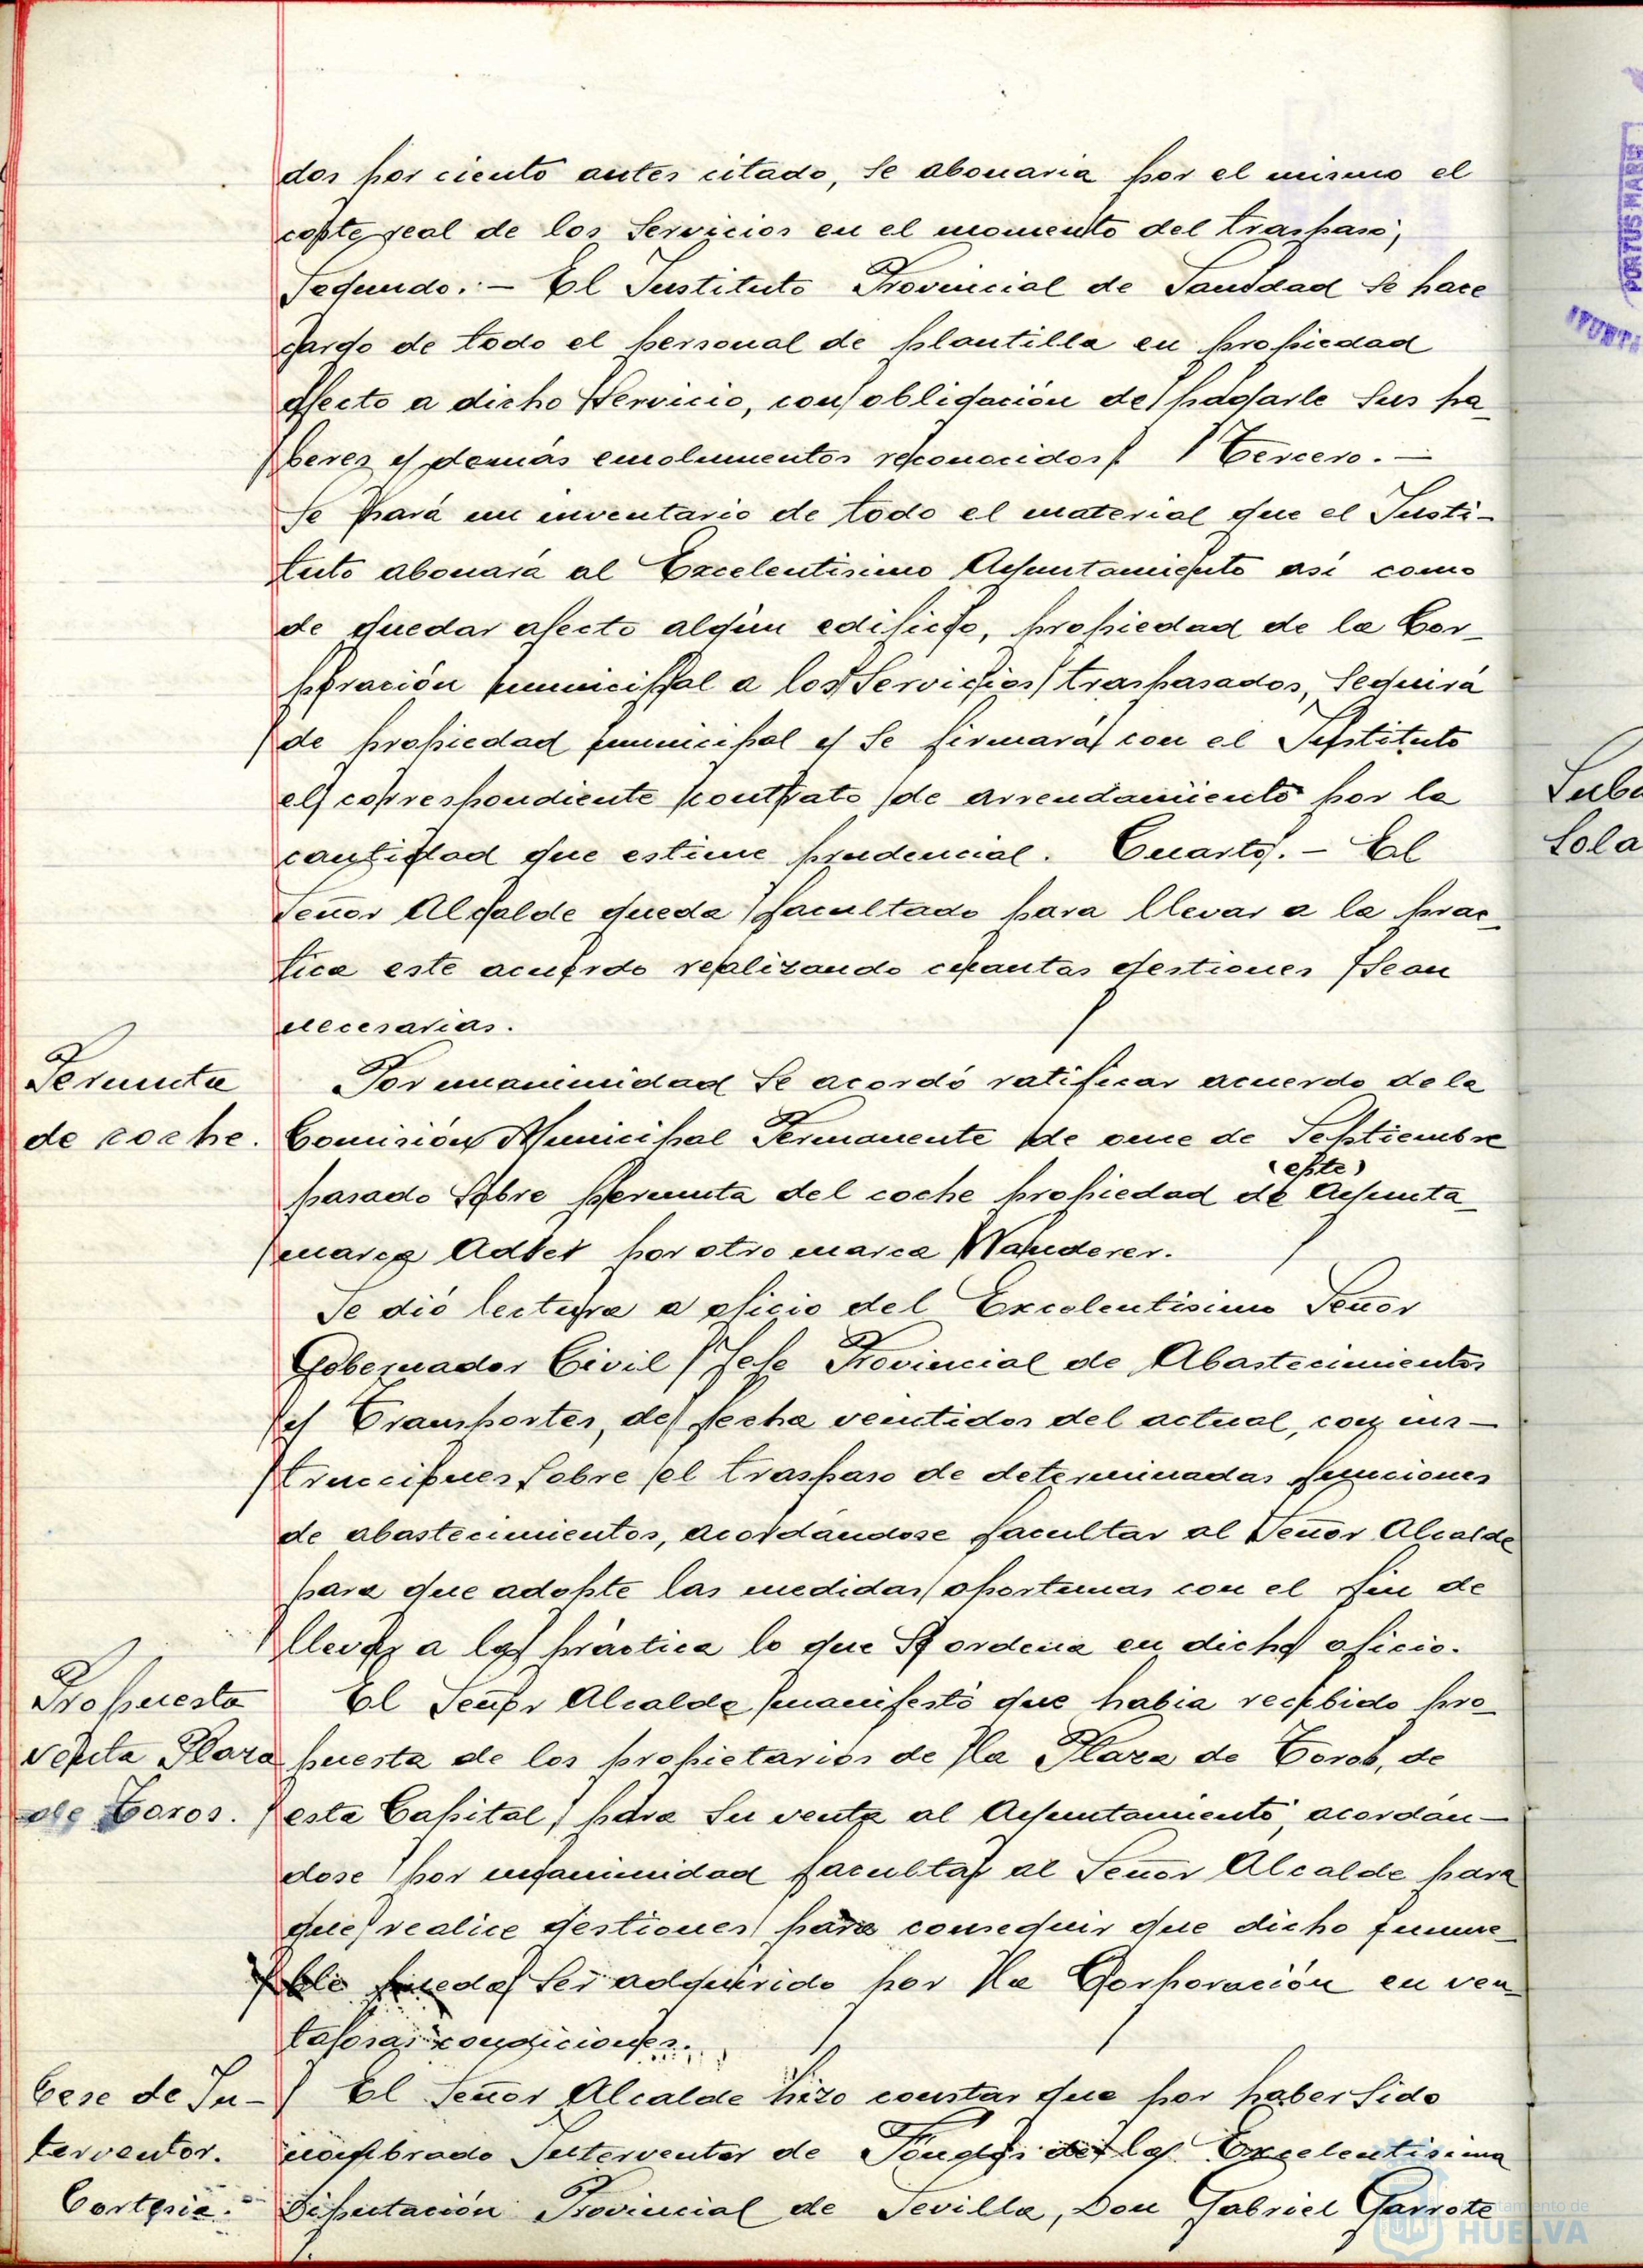 dos por ciento antes citado, se abonaria por el mismo el
coste real de los Servicios en el momento del traspaso,
Segundo. – El Instituto Provincial de Sanidad se hace
cargo de todo el personal de plantilla en propiedad
afecto a dicho Servicio, con obligación de pagarle sus ha-
beres y demás emolumentos reconocidos. Tercero. –
Se hará un inventario de todo el material que el Insti-
tuto abonará al Excelentisimo Ayuntamiento asi como
de quedar afecto algún edificio, propiedad de la Cor-
poración municipal a los Servicios traspasados, seguirá
de propiedad municipal y se firmará con el Instituto
el correspondiente contrato de arrendamiento por la
cantidad que estime prudencial. Cuarto. – El
Señor Alcalde queda facultado para llevar a la prac-
tica este acuerdo realizando cuantas gestiones sean
necesarias.
Permuta
de coche.
Por unanimidad se acordó ratificar acuerdo de la
Comisión Municipal Permanente de once de Septiembre
(este)
pasado sobre permuta del coche propiedad de Ayunta-
marca Adler por otro marca Wanderer.
Se dió lectura a oficio del Excelentisimo Señor
Gobernador Civil Jefe Provincial de Abastecimientos
y Transportes, de fecha veintidos del actual, con ins-
trucciones sobre el traspaso de determinadas funciones
de abastecimientos, acordándose facultar al Señor Alcalde
para que adopte las medidas oportunas con el fin de
llevar a la práctica lo que se ordena en dicho oficio.
Propuesta
venta Plaza
de Toros.
El Señor Alcalde manifestó que habia recibido pro-
puesta de los propietarios de la Plaza de Toros, de
esta Capital, para su venta al Ayuntamiento, acordán-
dose por unanimidad facultar al Señor Alcalde para
que realice gestiones para conseguir que dicho inmue-
ble pueda ser adquirido por la Corporación en ven-
tajosas condiciones.
Cese de In-
terventor.
Cortesia.
El Señor Alcalde hizo constar que por haber sido
nombrado Interventor de Fondos de la Excelentisima
Diputación Provincial de Sevilla, Don Gabriel Garrote
Suba
Sola
PORTUS MARIS
Ayuntamiento de
HUELVA